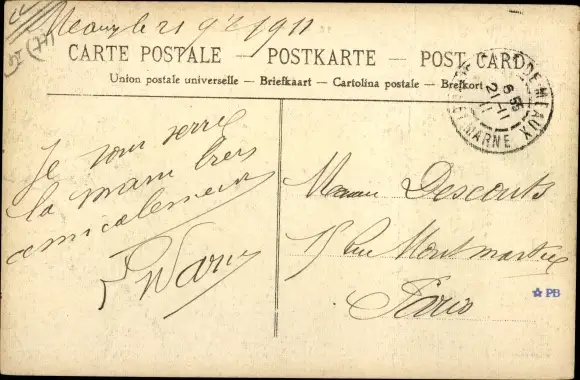 Meaux le 21 9bre 1911
CARTE POSTALE – POSTKARTE – POST CARD
Union postale universelle – Briefkaart – Cartolina postale – Brefkort
DE MEAUX
6 55
21-11
11
ET MARNE
Je vous serre
la main très
amicalement
Descourts
15 rue Montmartre
Paris
PB